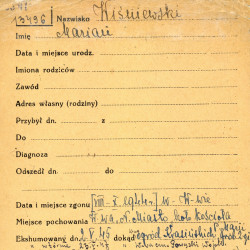 13496 Nazwisko Wiśniewski
Imię Marian
Data i miejsce urodz.
Imiona rodziców
Zawód
Adres własny (rodziny)
Przybył dn. z
Dn. do
Diagnoza
Odszedł dn. do
Data i miejsce zgonu [VIII-X 1944r] w W-wie
Miejsce pochowania W-wa, N. Miasto koło Kościoła
Ekshumowany dn. 2 V 45 dokąd ogród Krasińskich